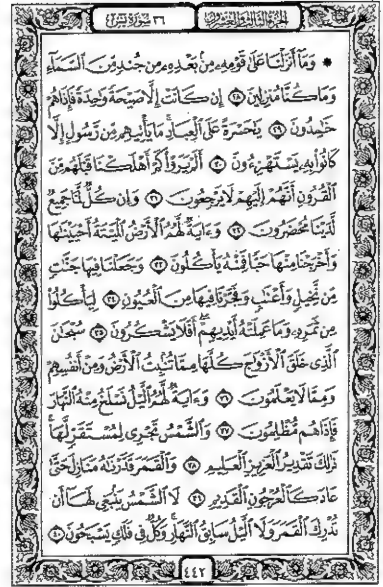 الجزء الثالث والعشرون
٣٦ سورة يس
۞ وَمَا أَنزَلْنَا عَلَىٰ قَوْمِهِ مِنْ بَعْدِهِ مِن جُندٍ مِّنَ السَّمَاءِ
وَمَا كُنَّا مُنزِلِينَ ۝٢٨ إِن كَانَتْ إِلَّا صَيْحَةً وَاحِدَةً فَإِذَا هُمْ
خَامِدُونَ ۝٢٩ يَا حَسْرَةً عَلَى الْعِبَادِ مَا يَأْتِيهِم مِّن رَّسُولٍ إِلَّا
كَانُوا بِهِ يَسْتَهْزِءُونَ ۝٣٠ أَلَمْ يَرَوْا كَمْ أَهْلَكْنَا قَبْلَهُم مِّنَ
الْقُرُونِ أَنَّهُمْ إِلَيْهِمْ لَا يَرْجِعُونَ ۝٣١ وَإِن كُلٌّ لَّمَّا جَمِيعٌ
لَّدَيْنَا مُحْضَرُونَ ۝٣٢ وَءَايَةٌ لَّهُمُ الْأَرْضُ الْمَيْتَةُ أَحْيَيْنَاهَا
وَأَخْرَجْنَا مِنْهَا حَبًّا فَمِنْهُ يَأْكُلُونَ ۝٣٣ وَجَعَلْنَا فِيهَا جَنَّاتٍ
مِّن نَّخِيلٍ وَأَعْنَابٍ وَفَجَّرْنَا فِيهَا مِنَ الْعُيُونِ ۝٣٤ لِيَأْكُلُوا
مِن ثَمَرِهِ وَمَا عَمِلَتْهُ أَيْدِيهِمْ أَفَلَا يَشْكُرُونَ ۝٣٥ سُبْحَانَ
الَّذِي خَلَقَ الْأَزْوَاجَ كُلَّهَا مِمَّا تُنبِتُ الْأَرْضُ وَمِنْ أَنفُسِهِمْ
وَمِمَّا لَا يَعْلَمُونَ ۝٣٦ وَءَايَةٌ لَّهُمُ اللَّيْلُ نَسْلَخُ مِنْهُ النَّهَارَ
فَإِذَا هُم مُّظْلِمُونَ ۝٣٧ وَالشَّمْسُ تَجْرِي لِمُسْتَقَرٍّ لَّهَا
ذَٰلِكَ تَقْدِيرُ الْعَزِيزِ الْعَلِيمِ ۝٣٨ وَالْقَمَرَ قَدَّرْنَاهُ مَنَازِلَ حَتَّىٰ
عَادَ كَالْعُرْجُونِ الْقَدِيمِ ۝٣٩ لَا الشَّمْسُ يَنبَغِي لَهَا أَن
تُدْرِكَ الْقَمَرَ وَلَا اللَّيْلُ سَابِقُ النَّهَارِ وَكُلٌّ فِي فَلَكٍ يَسْبَحُونَ ۝٤٠
٤٤٢